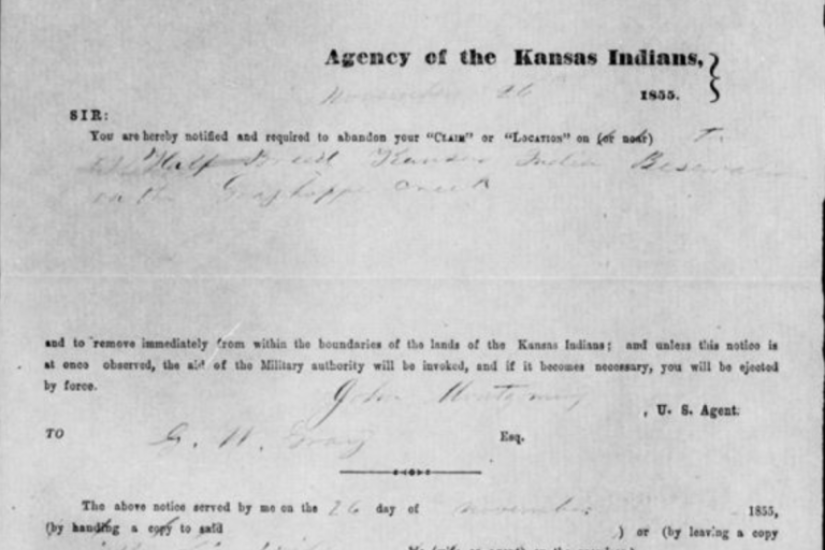 Agency of the Kansas Indians,
November 26 1855.
SIR:
You are hereby notified and required to abandon your "CLAIM" or "LOCATION" on (or near)
Half Breed Kansas India
on the Creek
and to remove immediately from within the boundaries of the lands of the Kansas Indians; and unless this notice is
at once observed, the aid of the Military authority will be invoked, and if it becomes necessary, you will be ejected
by force.
John Montgomery
, U. S. Agent.
TO G. W. Gray Esq.
The above notice served by me on the 26 day of November 1855,
(by handing a copy to said ) or (by leaving a copy